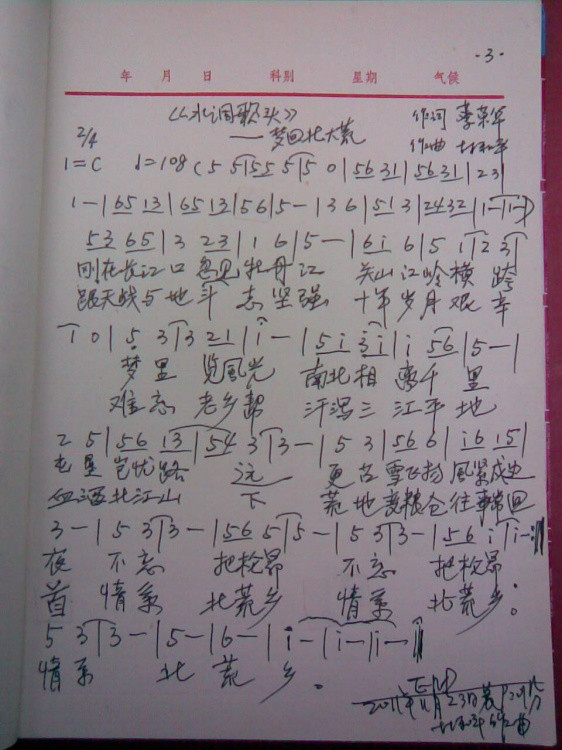 ·3·
年 月 日 科别 星期 气候
《水调歌头》 作词 李荣华
——梦回北大荒 作曲
2/4
1=C ♩=108 (5 5 | 55 5 | 5 0 | 56 31 | 56 31 | 2 3 |
1 - | 65 13 | 65 13 | 5 6 | 5 - | 3 6 | 51 3 | 24 32 | 1 - | 1 - )
53 65 | 3 23 | 1 6 | 5 - | 6i 6 | 5 1 | 2 3 |
刚在长江口 忽见牡丹江 关山江岭横 跨
跟天战与地斗 志坚强 十年岁月艰 辛
1 0 | 5 3 | 3 21 | i - | 5i 3i | i 56 | 5 - |
梦里 览風光 南北相 离千 里
难忘 老乡帮 汗泻三 江平 地
2 5 | 56 13 | 54 3 | 3 - | 5 3 | 56 6 | i6 15 |
屯垦岂忧路 远 更苦雪飞扬風紧成边
血洒北江山 下 荒地变粮仓往事常回
3 - | 5 3 | 3 - | 56 5 | 5 - | 5 3 | 3 - | 56 i | i - :||
夜 不忘 把枪昂 不忘 把枪昂
首 情系 北荒乡 情系 北荒乡。
5 3 | 3 - | 5 - | 6 - | i - | i - | i - ||
情系 北 荒 乡。